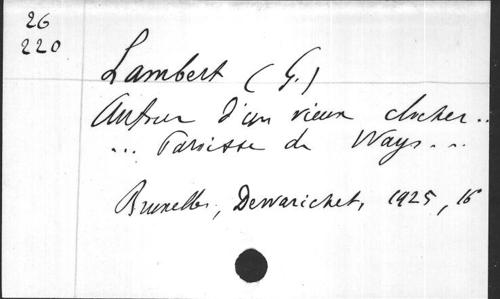 26
220
Lambert (G.)
Autour d'un vieux clocher..
... Paroisse de Ways...
Bruxelles, Dewarichet, 1925, 16